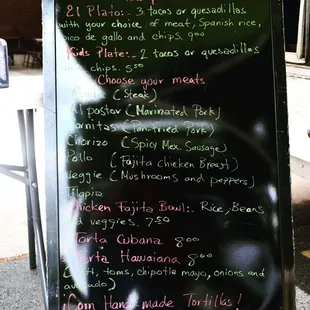 El Plato:- 3 tacos or quesadillas
with your choice of meat, Spanish rice,
pico de gallo and chips. 9.00
Kids Plate:- 2 tacos or quesadillas
chips. 5.50
Choose your meats
(Steak)
Al pastor (Marinated Pork)
Carnitas (Pan-fried Pork)
Chorizo (Spicy Mex. Sausage)
Pollo (Fajita Chicken Breast)
Veggie (Mushrooms and peppers)
Tilapia
Chicken Fajita Bowl:- Rice, Beans
and veggies. 7.50
Torta Cubana 8.00
Torta Hawaiana 8.00
toms, chipotle mayo, onions and
avocado)
¡Corn Hand made Tortillas!